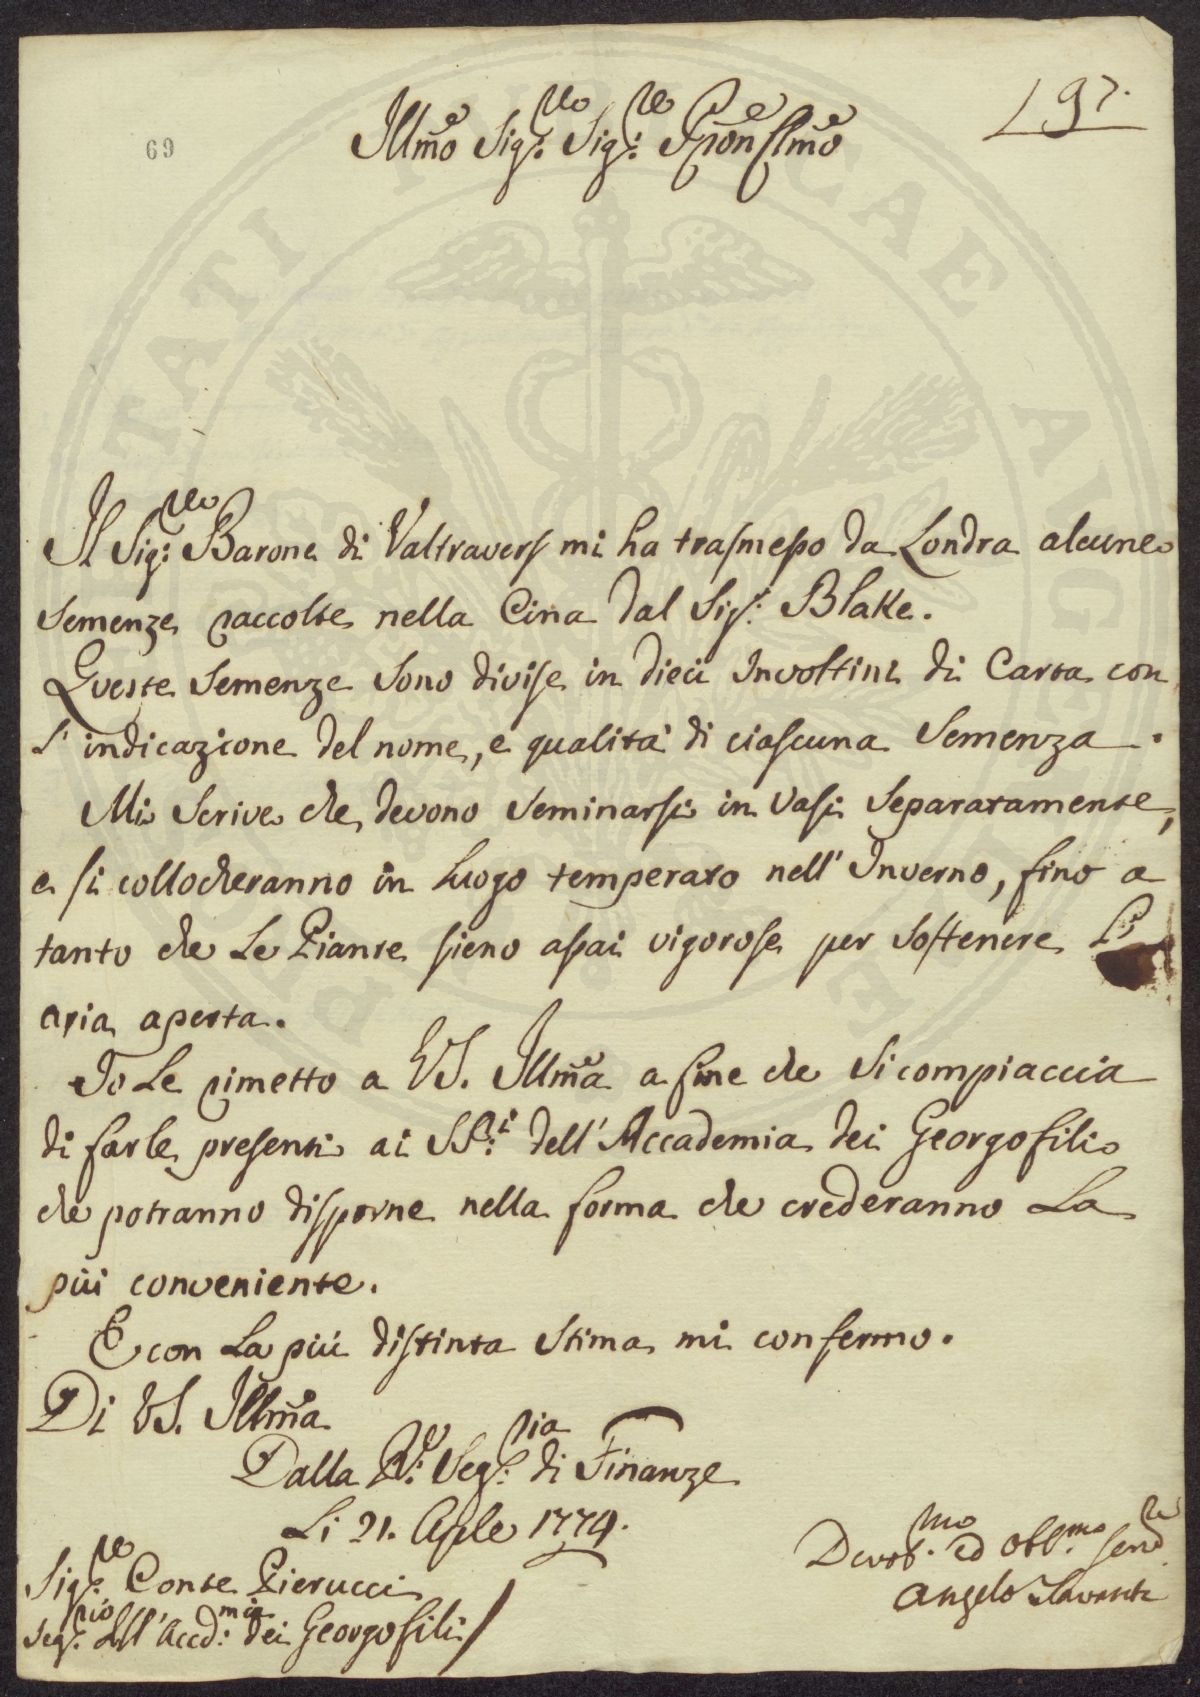 197.
69
Illmo Sig.re Sig.re Pron Clmo
Il Sig.re Barone di Valtravers mi ha trasmesso da Londra alcune
Semenze raccolte nella Cina dal Sig.r Blake.
Queste Semenze sono divise in dieci Involtini di Carta con
l'indicazione del nome, e qualità di ciascuna Semenza.
Mi scrive che devono seminarsi in Vasi separatamente,
e si collocheranno in luogo temperato nell'Inverno, fino a
tanto che le Piante sieno assai vigorose per sostenere l'
aria aperta.
Io le rimetto a VS. Illma a fine che si compiaccia
di farle presenti ai SS.ri dell'Accademia dei Georgofili
che potranno disporne nella forma che crederanno la
più conveniente.
E con la più distinta stima mi confermo.
Di VS. Illma
Dalla R.e Seg.ria di Finanze
Li 21. Aprle 1774.
Devot.mo ed Obb.mo Serv.re
Angelo Tavanti
Sig.re Conte Pierucci
Seg.rio dell'Accad.mia dei Georgofili